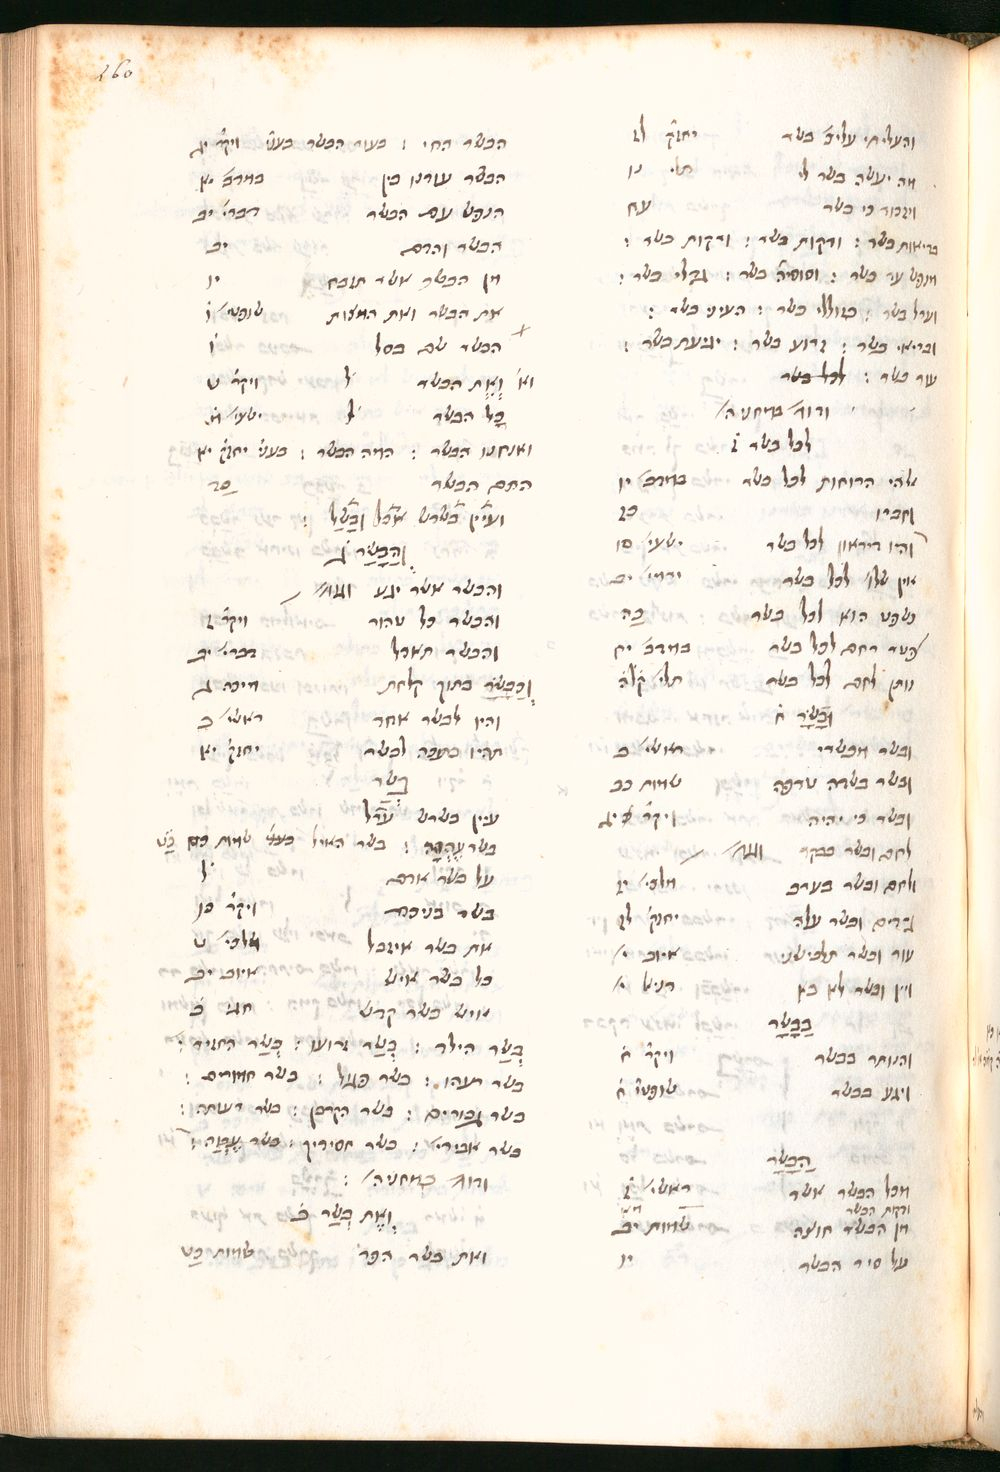 260
והעליתי עליכ̇ בשר יחזק̇ לז
מה יעשה בשר לי תלי׳ נו
ויזכור כי בשר עח
בריאות בשר : ודקות בשר : ודקות בשר :
מנפש עד בשר : וסוסיה̇ בשר : גדלי בשר :
וערל בשר : בגוללי בשר : העיני בשר :
ובריאי בשר : זרוע בשר : יגיעת בשר :
עור בשר : לכל בשר
ודוד במחניה׳
לכל בשר ז̇
אלהי הרוחות לכל בשר במדב׳ יו
וחברו כז
והיו דיראון לכל בשר ישעי׳ סו
אין שלו׳ לכל בשר ירמי׳ יב
נשפט הוא לכל בשר כה
פטר רחם לכל בשר במדב׳ יח
נותן לחם לכל בשר תלי׳ קלו̇
ובשר ח̇
ובשר מבשרי ראשי׳ ב
ובשר בשדה טרפה שמות כב
ובשר כי יהיה ויקר̇ יג
לחם ובשר בבקר וגו׳
ולחם ובשר בערב מלכי׳ יז
גידים ובשר עלה יחזק׳ לז
עור ובשר תלבישני איוב י׳
ויין ובשר לא בא דניא׳ י׳
בבשר
והנותר בבשר ויקר̇ ח̇
ויגע בבשר שופטי̇ ו̇
הבשר
מכל הבשר אשר ראשי׳ ז̇
ודקות הבשר מא
מן הבשר חוצה שמות יב
על סיר הבשר יו
הבשר החי : בעור הבשר בענ̇י̇ ויקר̇ יג
הבשר עודנו בין במדב׳ יא
הנפש עם הבשר דברי׳ יב
הבשר והדם יב
מן הבשר אשר תזבח יו
את הבשר ואת המצות שופטי׳ ו̇
הבשר שם בסל ו̇
וא׳ ואת הבשר ל̇ ויקר̇ ט
כל הבשר ל̇ ישעי׳ מ̇
ואנחנו הבשר : היה הבשר : בעני׳ יחזק̇ יא
התם הבשר כד
ועיין בשרש אכל ובשל :
והבשר ג̇
והבשר אשר יגע וגו׳
והבשר כל טהור ויקר̇ ז
והבשר תאכל דברי׳ יב
וכבשר בתוך קלחת מיכה ג
והיו לבשר אחד ראשי׳ ב
תהיו כתבה לבשר יחזק׳ יא
בשר
עיין בשרש ערל
בשר ערוה : בשר האיל בענ̇י̇ שמות כט כט
על בשר אדם ל̇
בשר בניכם ויקר̇ כו
את בשר איזבל מלכי׳ ט
כל בשר איש איוב יב
איש בשר קדש חגי ב̇
בשר הילד : בשר זרועו : בשר החזיר :
בשר רעהו : בשר פגול : בשר חמורים :
בשר גבורים : בשר הקרבן : בשר רעותה :
בשר אבירי׳ : בשר חסידיך : בשר ערוה :
ודוד במחניה׳ :
ואת בשר ב̇
ואת בשר הפר̇ שמות כט